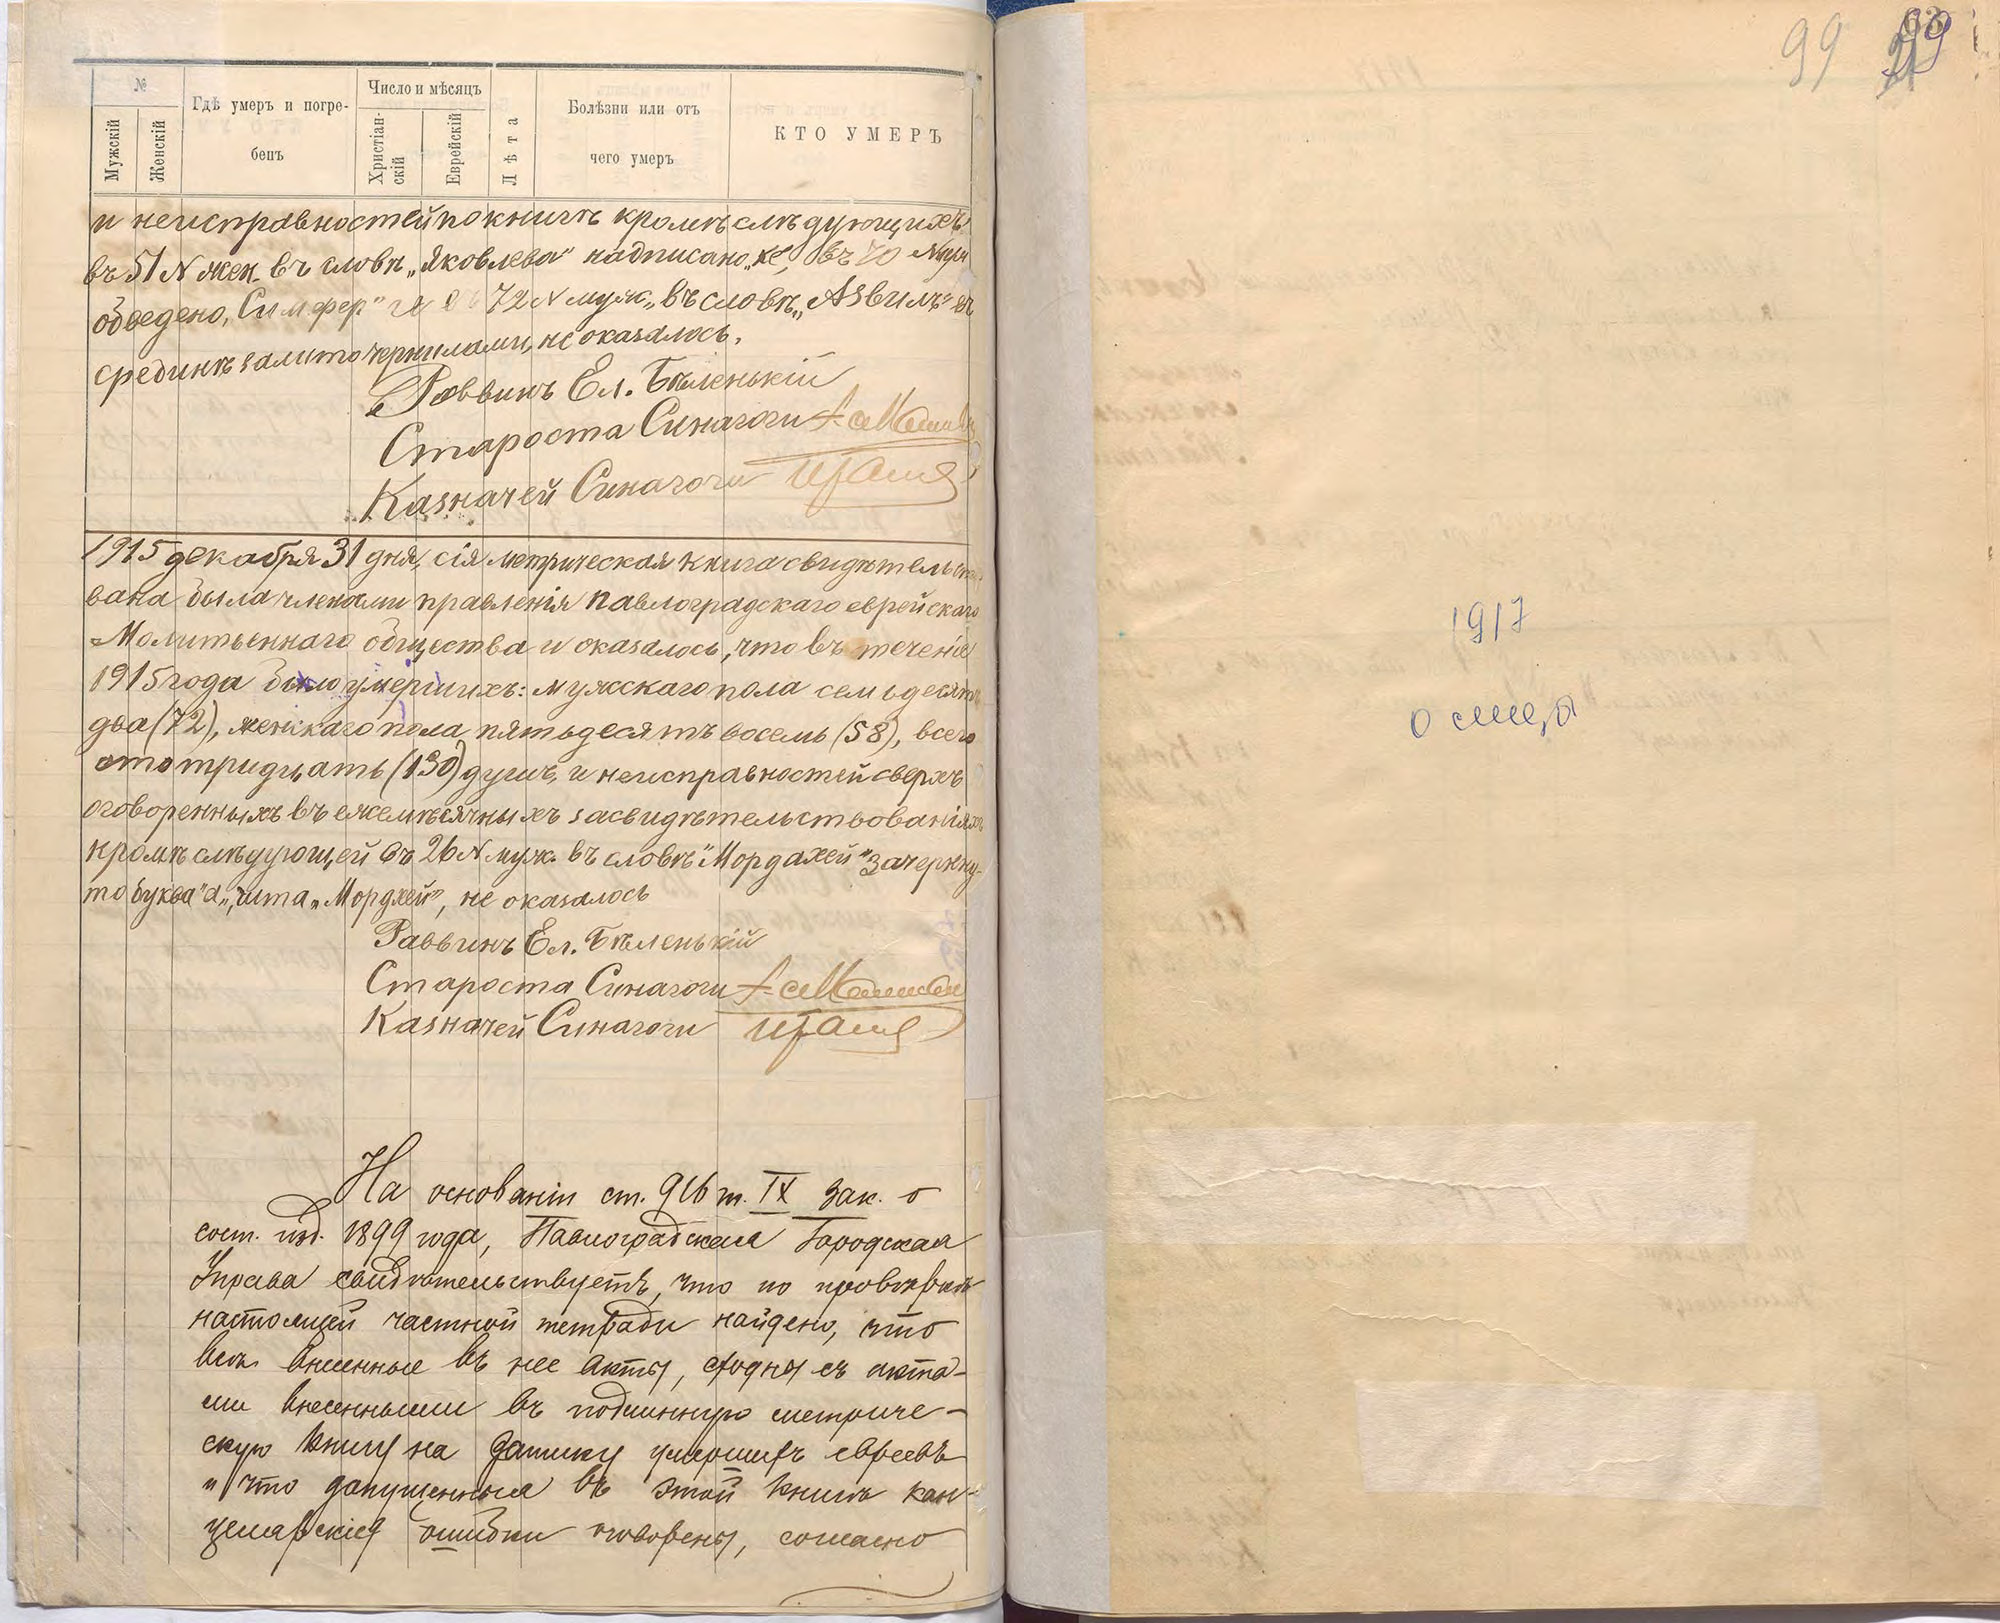 №
Мужскій
Женскій
Гдѣ умеръ и погре-
бенъ
Число и мѣсяцъ
Христіан-
скій
Еврейскій
Лѣта
Болѣзни или отъ
чего умеръ
КТО УМЕРЪ
и неисправностей по книгѣ кромѣ слѣдующихъ:
въ 51 N жен. въ словѣ „Яковлева" надписано
обведено, Симфер." и въ 72 N муж. въ словѣ „Азвилъ" въ
срединѣ залито чернилами, не оказалось.
Раввинъ Ел. Бѣленькій
Староста Синагоги
Казначей Синагоги
1915 декабря 31 дня, сія метрическая книга свидѣтельст
вана была членами правленія Павлоградскаго еврейскаго
Молитвеннаго общества и оказалось, что въ теченіе
1915 года было умершихъ: мужскаго пола семьдесятъ
два (72), женскаго пола пятьдесятъ восемь (58), всего
сто тридцать (130) душъ, и неисправностей сверхъ
оговоренныхъ въ ежемѣсячныхъ засвидѣтельствованіяхъ
кромѣ слѣдующей въ 26 N муж. въ словѣ "Мордахей" зачеркну-
то буква "а", чита „Мордхей", не оказалось
Раввинъ Ел. Бѣленькій
Староста Синагоги
Казначей Синагоги
На основаніи ст. 916 т. IX Зак. о
сост. изд. 1899 года, Павлоградская Городская
Управа свидѣтельствуетъ, что по провѣркѣ
настоящей частной тетради найдено, что
всѣ внесенные въ нее акты, сходны съ акта-
ми внесенными въ подлинную метриче-
скую книгу на записку умершихъ евреевъ
и что допущенныя въ этой книгѣ кан-
целярскія ошибки оговорены, согласно
99
1917